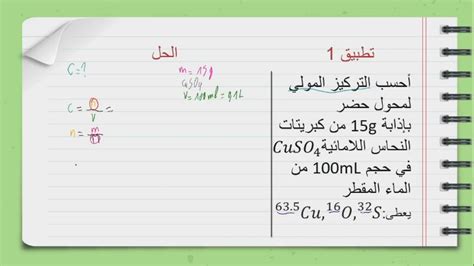 تطبيق 1
أحسب التركيز المولي
لمحول حضر
بإذابة 15g من كبريتات
النحاس اللامائية CuSO₄
في حجم 100mL من
الماء المقطر
يعطى: ⁶³·⁵Cu, ¹⁶O, ³²S
الحل
C=?
m=15g
CuSO₄
V=100ml=0,1L
C = n/V =
n = m/M